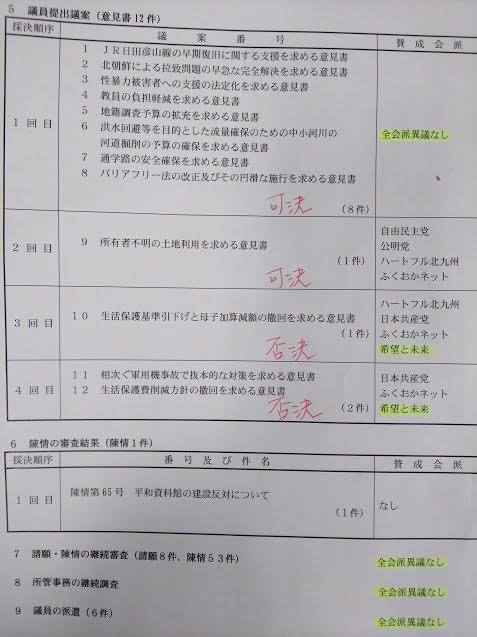 5 議員提出議案（意見書12件）
採決順序 議案番号 賛成会派
1回目
1 ＪＲ日田彦山線の早期復旧に関する支援を求める意見書
2 北朝鮮による拉致問題の早急な完全解決を求める意見書
3 性暴力被害者への支援の法定化を求める意見書
4 教員の負担軽減を求める意見書
5 地籍調査予算の拡充を求める意見書
6 洪水回避等を目的とした流量確保のための中小河川の
河道掘削の予算の確保を求める意見書
7 通学路の安全確保を求める意見書
8 バリアフリー法の改正及びその円滑な施行を求める意見書
可決
（8件）
全会派異議なし
2回目
9 所有者不明の土地利用を求める意見書
（1件）
可決
自由民主党
公明党
ハートフル北九州
ふくおかネット
3回目
10 生活保護基準引下げと母子加算減額の撤回を求める意見書
（1件）
否決
ハートフル北九州
日本共産党
ふくおかネット
希望と未来
4回目
11 相次ぐ軍用機事故で抜本的な対策を求める意見書
12 生活保護費削減方針の撤回を求める意見書
否決
（2件）
日本共産党
ふくおかネット
希望と未来
6 陳情の審査結果（陳情1件）
採決順序 番号及び件名 賛成会派
1回目
陳情第65号 平和資料館の建設反対について
（1件）
なし
7 請願・陳情の継続審査（請願8件、陳情53件） 全会派異議なし
8 所管事務の継続調査 全会派異議なし
9 議員の派遣（6件） 全会派異議なし